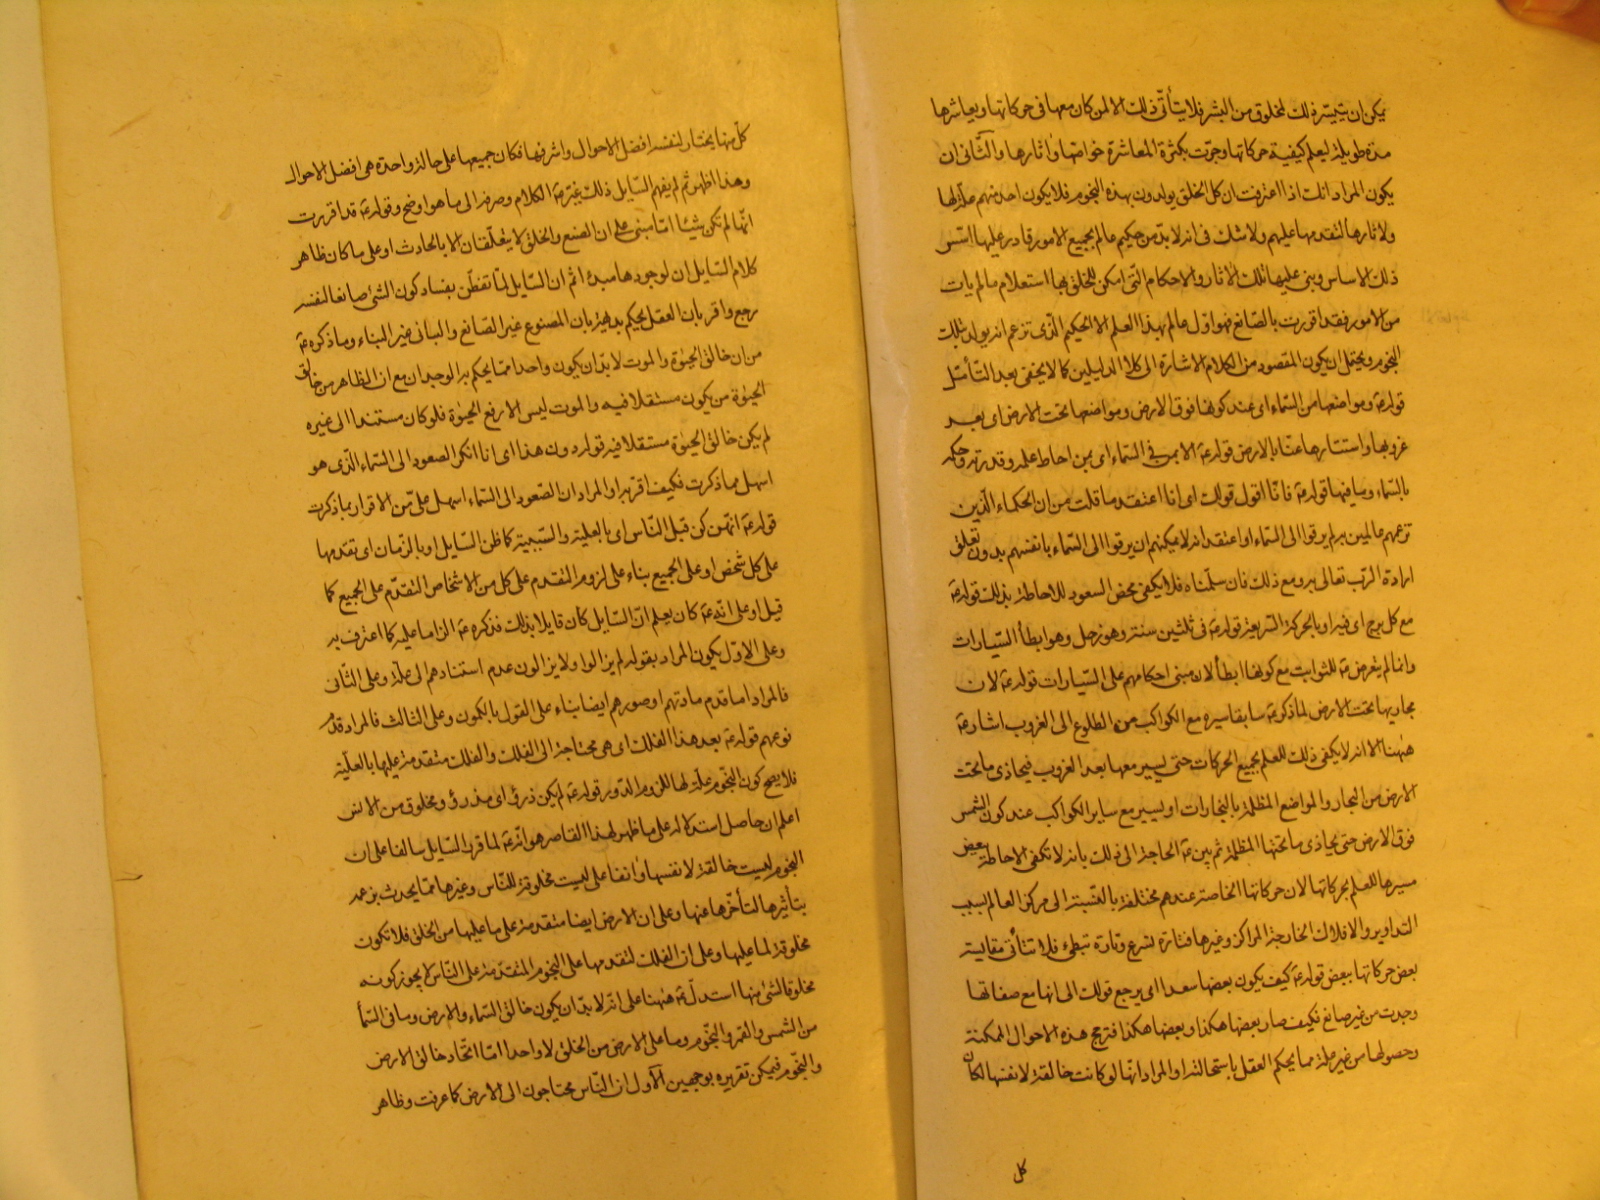 يمكن ان يتيسّر ذلك لمخلوق من البشر فلا يتأتّى ذلك الا لمن كان معها فى حركاتها ويعاشرها
مدة طويلة ليعلم كيفية حركاتها وجرّب بكثرة المعاشرة خواصّها واثارها والثانى ان
يكون المراد انك اذا اعترفت ان كل الخلق يولدون بهذه النجوم فلا يكون احد منهم علّة لها
ولا ثارها لتقدمها عليهم ولا شك فى انه لا بدّ من حكيم عالم بجميع الامور قادر عليها اسّس
ذلك الاساس وبنى عليها تلك الاثار والاحكام التّى امكن للخلق بها استعلام ما لم يات
من الامور فقد اقررت بالصّانع فهو اوّل عالم بهذا العلم لا الحكيم الذّى تزعم انه يولد بتلك
النجوم ويحتمل ان يكون المقصود من الكلام الاشارة الى كلا الدليلين كما لا يخفى بعد التّأمّل
قوله ع ومواضعها من السّماء اى عند كونها فوق الارض ومواضعها تحت الارض اى بعد
غروبها واستتارها عنّا بالارض قوله ع الا بمن فى السّماء اى بمن احاط علمه وقدرته وحكمه
بالسّماء وما فيها قوله ع فانّا اقول قولك اى انا اعتقد ما قلت من ان الحكماء الّذين
تزعمهم عالمين به لم يرقوا الى السّماء او اعتقد انه لا يمكنهم ان يرقوا الى السّماء بانفسهم بدون تعلق
ارادة الرّب تعالى به ومع ذلك فان سلّمناه فلا يكفى محض الصعود للاحاطة بذلك قوله ع
مع كل برج اى فيه او بالحركة السّريعة قوله ع فى ثلثين سنة وهو زحل وهو ابطأ السّيارات
وانما لم يتعرض ع للثوابت مع كونها ابطأ لان مبنى احكامهم على السّيارات قوله ع لان
مجاريها تحت الارض لما ذكر ع سابقا سيره مع الكواكب من الطلوع الى الغروب اشار ع
ههنا الا انه لا يكفى ذلك للعلم بجميع الحركات حتى يسير معها بعد الغروب فيحاذى ما تحت
الارض من البحار والمواضع المظلمة بالبخارات او يسير مع ساير الكواكب عند كون الشمس
فوق الارض حتى يحاذى ما تحتها المظلمة ثم بين ع الحاجة الى ذلك بانه لا تكفى الاحاطة ببعض
مسيرها للعلم بحركاتها لان حركاتها الخاصة عندهم مختلفة بالنّسبة الى مركز العالم بسبب
التداوير والافلاك الخارجة المراكز وغيرها فتارة تسرع وتارة تبطئ فلا تتأتى مقايسة
بعض حركاتها ببعض قوله ع كيف يكون بعضها سعدا اى يرجع قولك الى انها مع صفاتها
وجدت من غير صانع فكيف صار بعضها هكذا وبعضها هكذا فترجح هذه الاحوال الممكنة
وحصولها من غير علة مما يحكم العقل باستحالته او المراد انّها لو كانت خالقة لانفسها لكان
كل
كلّ منها يختار لنفسه افضل الاحوال واشرفها فكان جميعها على حالة واحدة هى افضل الاحوال
وهذا اظهر ثم لم يفهم السّايل ذلك غيّر ع الكلام وصرفه الى ما هو اوضح وقوله ع قد اقررت
انّها لم تكن شيئا امّا مبنى على ان الصنع والخلق لا يتعلّقان الا بالحادث او على ما كان ظاهر
كلام السّايل ان لوجودها مبدء اثم ان السّايل لمّا تفطّن بفساد كون الشئ صانعا لنفسه
رجع واقر بان العقل يحكم بديهة بان المصنوع غير الصّانع والبانى غير البناء وما ذكره ع
من ان خالق الحيوة والموت لا بدّ ان يكون واحدا ممّا يحكم به الوجدان مع ان الظاهر من خالق
الحيوة من يكون مستقلا فيه والموت ليس الا رفع الحيوة فلو كان مستندا الى غيره
لم يكن خالق الحيوة مستقلا فيه قوله دون هذا اى انا انكر الصعود الى السّماء الّذى هو
اسهل مما ذكرت فكيف اقرّ به او المراد ان الصّعود الى السّماء اسهل علىّ من الاقرار بما ذكرت
قوله ع انهنّ كنّ قبل النّاس اى بالعلية والسّببية كما ظن السّايل او بالزّمان اى تقدّمها
على كل شخص او على الجميع بناء على لزوم التقدم على كل من الاشخاص التقدّم على الجميع كما
قيل او على انّه ع كان يعلم انّ السّايل كان قايلا بذلك فذكره ع الزاما عليه كما اعترف به
وعلى الاوّل يكون المراد بقوله لم يزالوا ولا يزالون عدم استنادهم الى علة وعلى الثّانى
فالمراد اما قدم مادتهم او صورهم ايضا بناء على القول بالكمون وعلى الثالث فالمراد قدم
نوعهم قوله ع بعد هذا الفلك اى هى محتاجة الى الفلك والفلك متقدمة عليها بالعلّية
فلا يصح كون النّجوم علّة لها للزوم الدّور قوله ع لم يكن ذرئ اى مذروّ ومخلوق من الانس
اعلم ان حاصل استدلاله على ما ظهر لهذا القاصر هو انّه ع لما قرر السّايل سالفا على ان
النجوم ليست خالقة لانفسها وانفا على ليست مخلوقة للنّاس وغيرها ممّا يحدث بزعمه
بتأثيرها لتأخّرها عنها وعلى ان الارض ايضا متقدمة على ما عليها من الخلق فلا تكون
مخلوقة لما عليها وعلى ان الفلك لتقدمها على النجوم المتقدّمة على النّاس لا يجوز كونه
مخلوقا لشئ منها استدلّ ع ههنا على انّه لا بدّ ان يكون خالق السّماء والارض وما فى السّمأ
من الشمس والقمر والنّجوم وما على الارض من الخلق لا واحدا امّا اتّحاد خالق الارض
والنّجوم فيمكن تقريره بوجهين الاول ان النّاس محتاجون الى الارض كما عرفت وظاهر